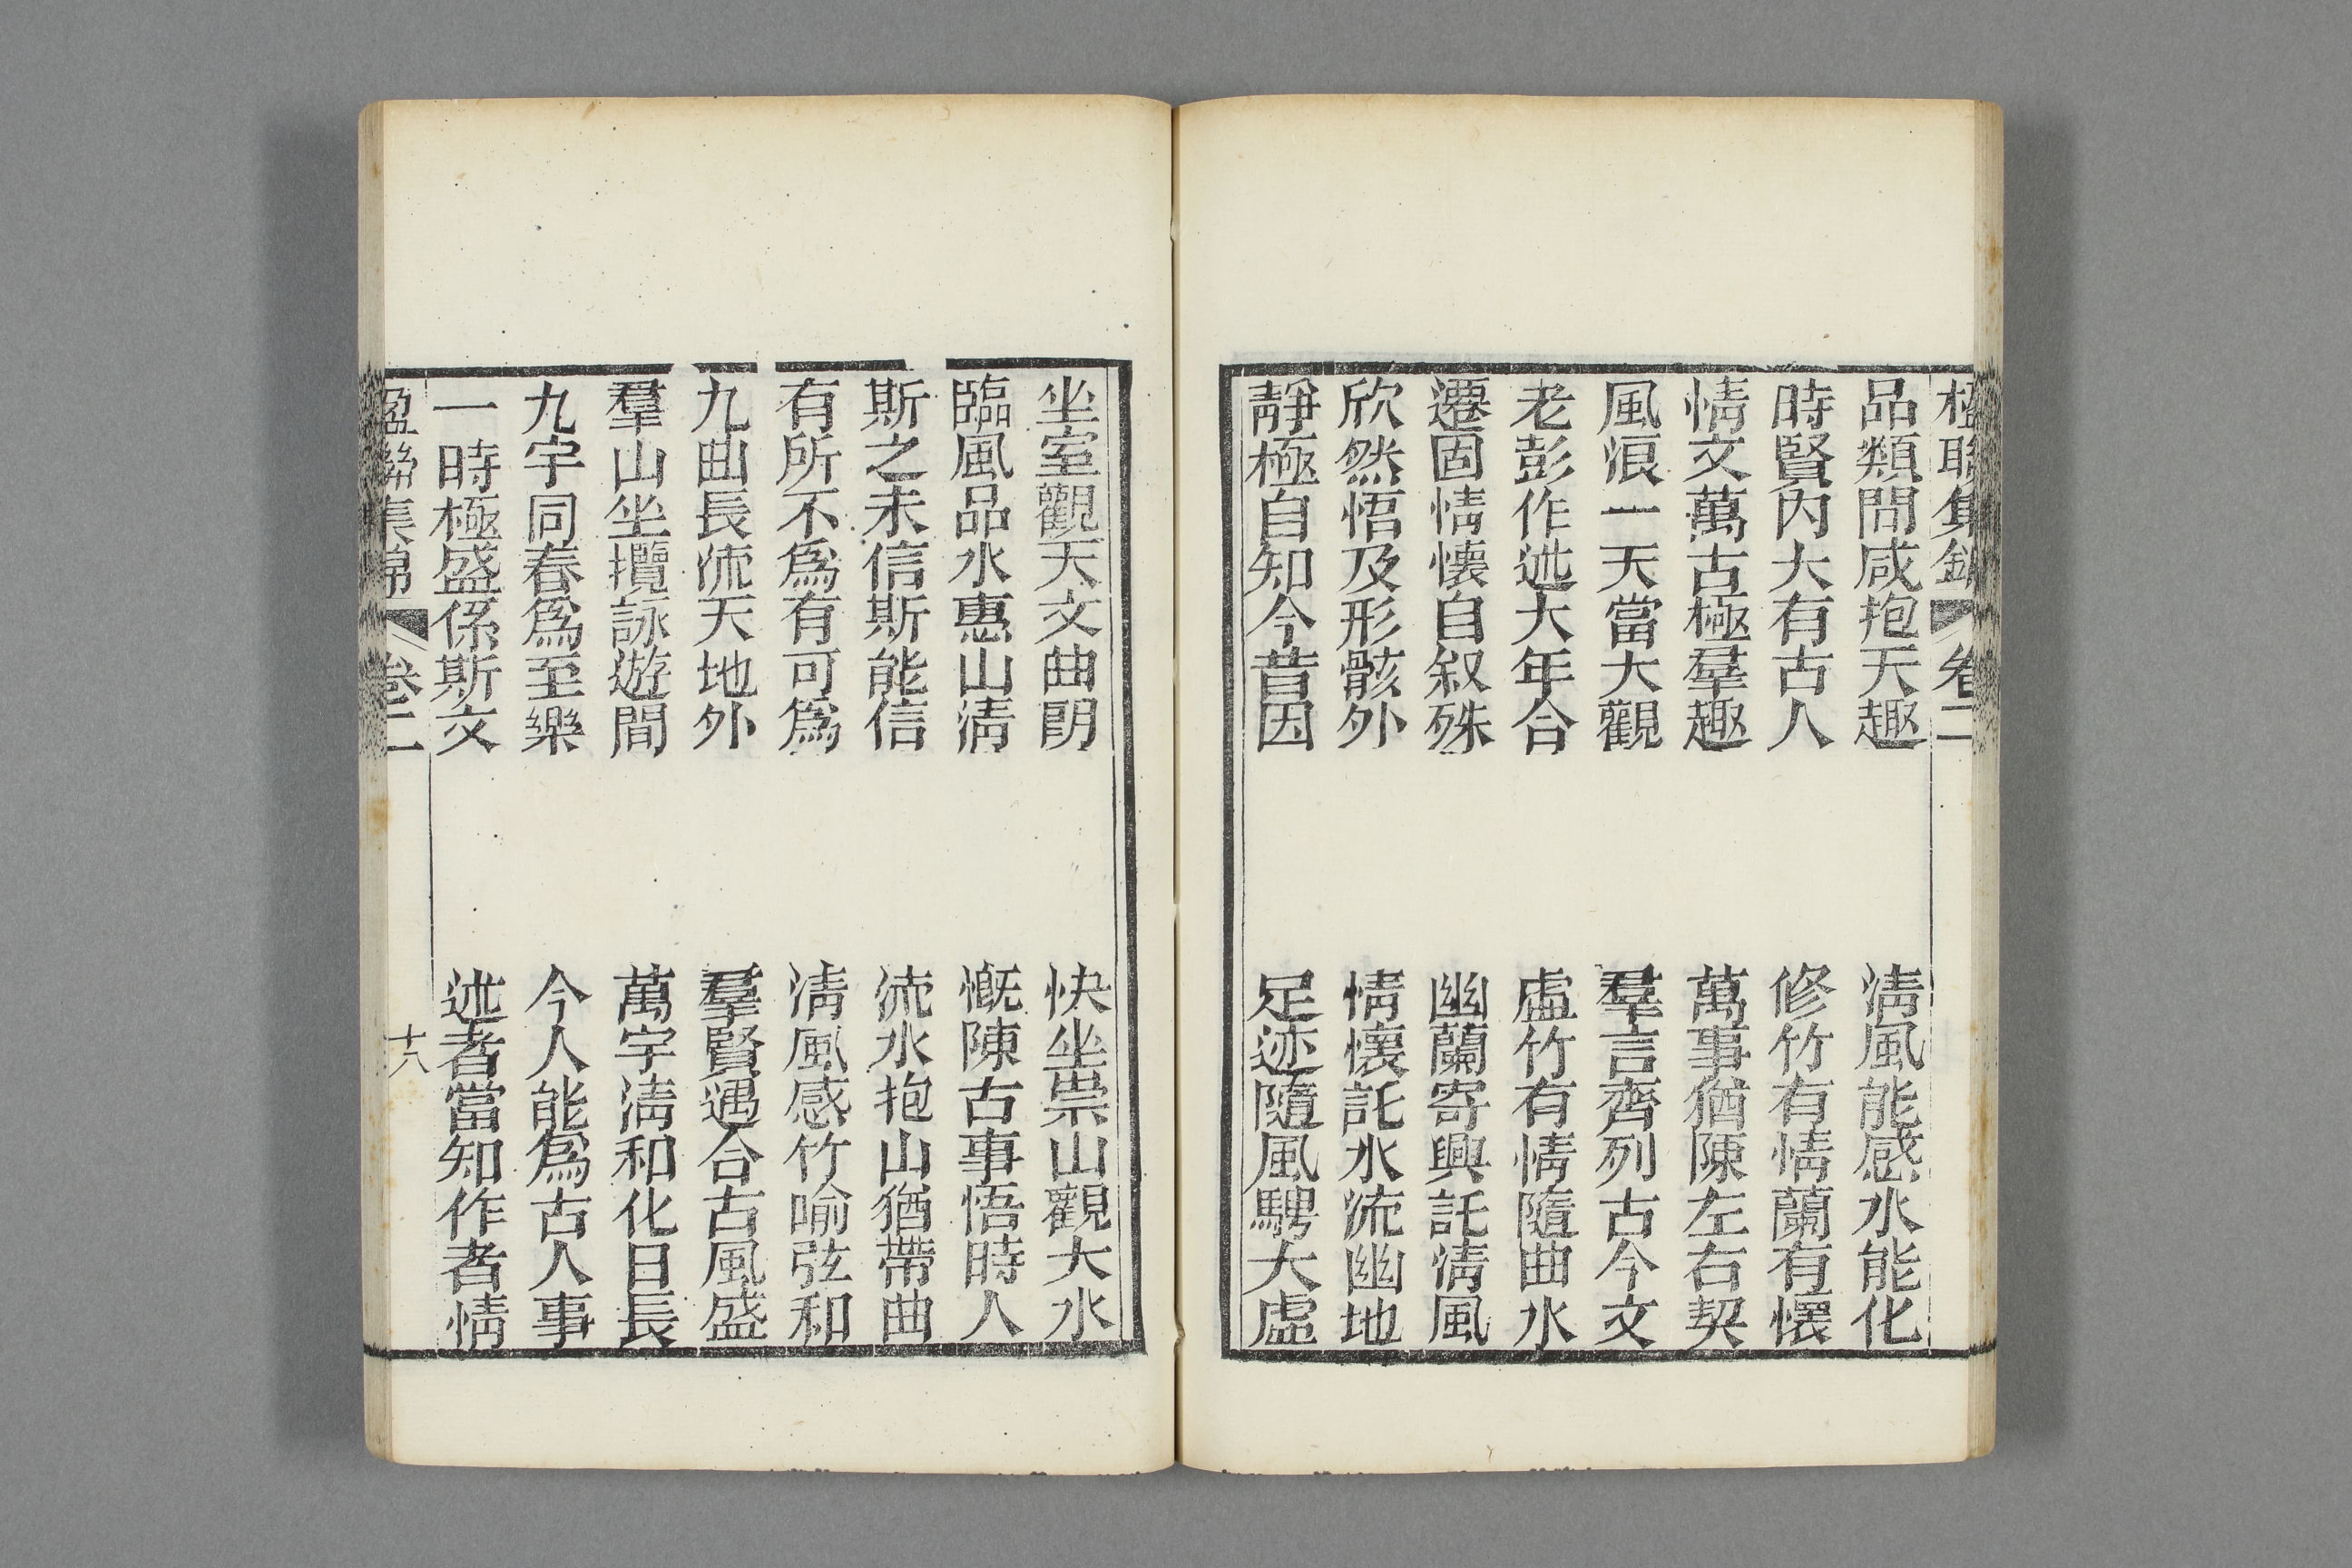 品類閒咸抱天趣　清風能感水能化
時賢內大有古人　修竹有情蘭有懷
情文萬古極羣趣　萬事猶陳左右契
風浪一天當大觀　羣言齊列古今文
老彭作述大年合　虛竹有情隨曲水
遷固情懷自叙殊　幽蘭寄興託清風
欣然悟及形骸外　情懷託水流幽地
靜極自知今昔因　足迹隨風騁大虛
坐室觀天文曲朗　快坐崇山觀大水
臨風品水惠山清　慨陳古事悟時人
斯之未信斯能信　流水抱山猶帶曲
有所不為有可為　清風感竹喻弦和
九曲長流天地外　羣賢遇合古風盛
羣山坐攬詠遊間　萬宇清和化日長
九宇同春為至樂　今人能為古人事
一時極盛係斯文　述者當知作者情
楹聯集錦　卷二　十八